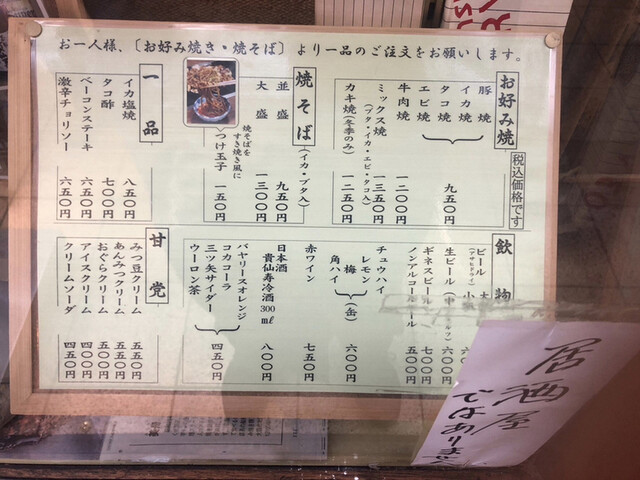 お一人様、〔お好み焼き・焼そば〕より一品のご注文をお願いします。
お好み焼
税込価格です
豚焼
イカ焼
タコ焼
エビ焼
九五〇円
牛肉焼 一二〇〇円
ミックス焼 一三五〇円
(ブタ・イカ・エビ・タコ入)
カキ焼(冬季のみ) 一二五〇円
焼そば
(イカ・ブタ入)
並盛 九五〇円
大盛 一三〇〇円
焼そばを
すき焼き風に
つけ玉子 一五〇円
一品
イカ塩焼 八五〇円
タコ酢 七〇〇円
ベーコンステーキ 六五〇円
激辛チョリソー 六五〇円
飲物
ビール 大
(アサヒドライ) 小
生ビール(中
ギネスビール 七〇〇円
ノンアルコール ール 五〇〇円
チュウハイ
レモン
梅
角ハイ
(缶)
六〇〇円
赤ワイン 七五〇円
日本酒
貴仙寿冷酒300㎖ 八〇〇円
バヤリースオレンジ
コカコーラ
三ツ矢サイダー
ウーロン茶
四五〇円
甘党
みつ豆クリーム 五五〇円
あんみつクリーム 五五〇円
おぐらクリーム 五五〇円
アイスクリーム 四〇〇円
クリームソーダ 四五〇円
居酒屋
ではありません